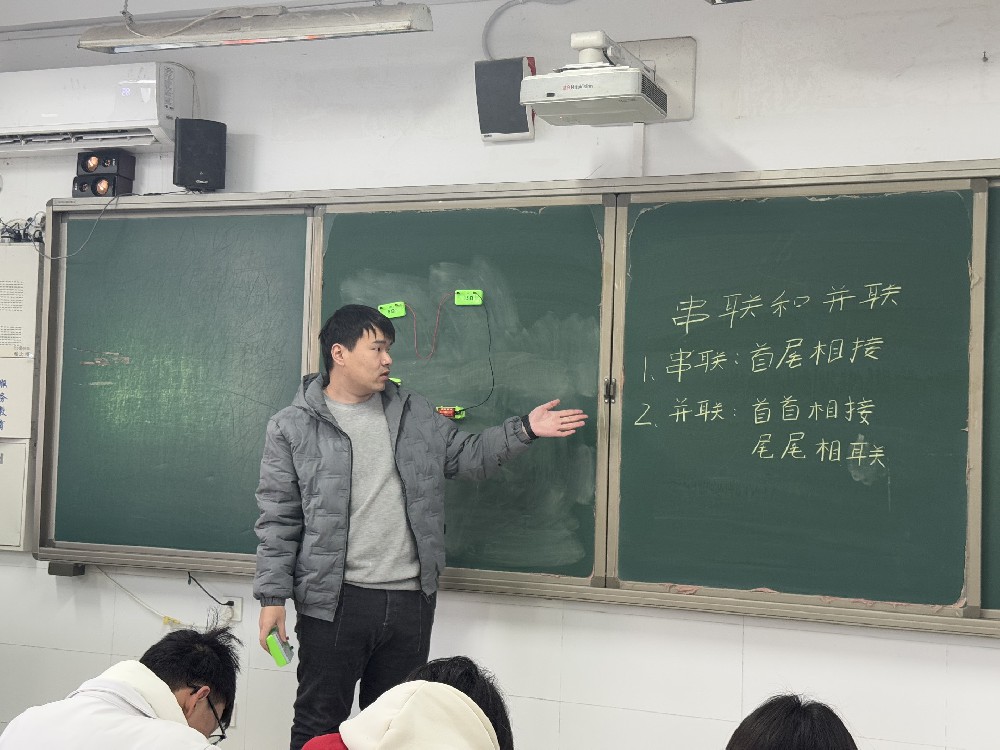 串联和并联
1. 串联：首尾相接
2. 并联：首首相接
尾尾相联